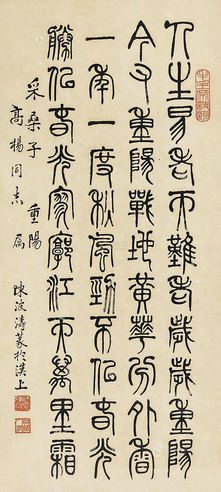 人生易老天難老歲歲重陽
今又重陽戰地黃華分外香
一年一度秋風勁不似春光
勝似春光寥廓江天萬里霜
采桑子 重陽
高楊同志
陳波濤篆於漢上